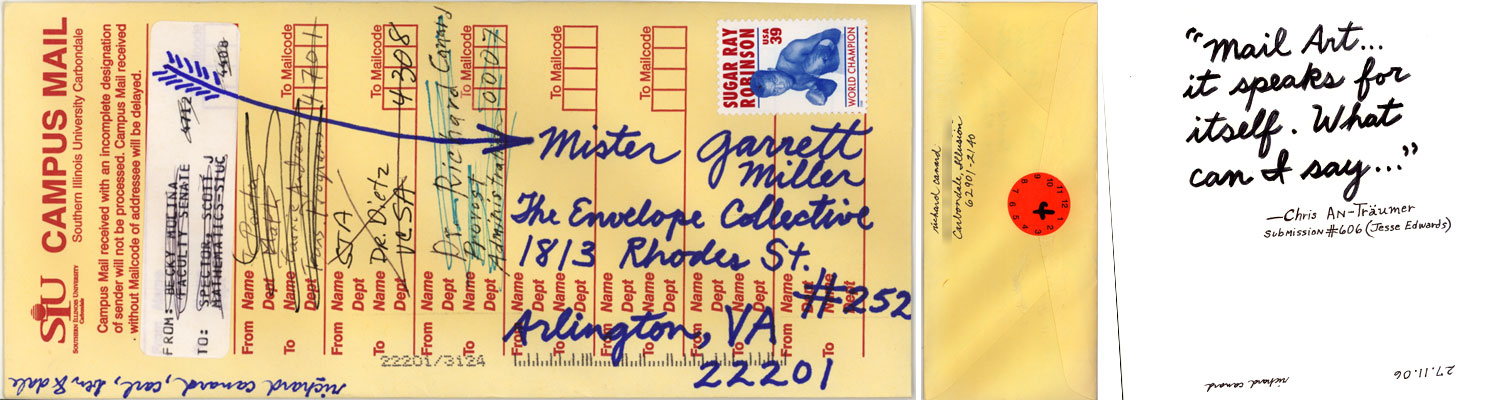 SIU CAMPUS MAIL
Southern Illinois University Carbondale
SOUTHERN ILLINOIS UNIVERSITY
Carbondale
Campus Mail received with an incomplete designation
of sender will not be processed. Campus Mail received
without Mailcode of addressee will be delayed.
FROM: BECKY MOLINA
FACULTY SENATE 4712
TO: SPECTOR, SCOTT J
MATHEMATICS-SIUC 4408
From Name
Dept
To Name
Dept
To Mailcode 4701
From Name SIA
Dept
To Name Dr. Dietz
Dept VCSA
To Mailcode 4308
From Name Dr. Richard
Dept Provost
To Name
Dept
To Mailcode 0007
From Name
Dept
To Name
Dept
To Mailcode
From Name
Dept
To Name
Dept
To Mailcode
From Name
Dept
To
SUGAR RAY
ROBINSON
USA
39
WORLD CHAMPION
Mister Garrett
Miller
The Envelope Collective
1813 Rhodes St.
#252
Arlington, VA
22201
22201/3124
richard canard, carl, den, & dale
richard canard
Carbondale, Illusion
62901-2140
1
2
3
4
5
6
7
8
9
10
11
12
"Mail Art...
it speaks for
itself. What
can I say..."
—Chris AN-Träumer
submission #606 (Jesse Edwards)
richard canard
27.11.06